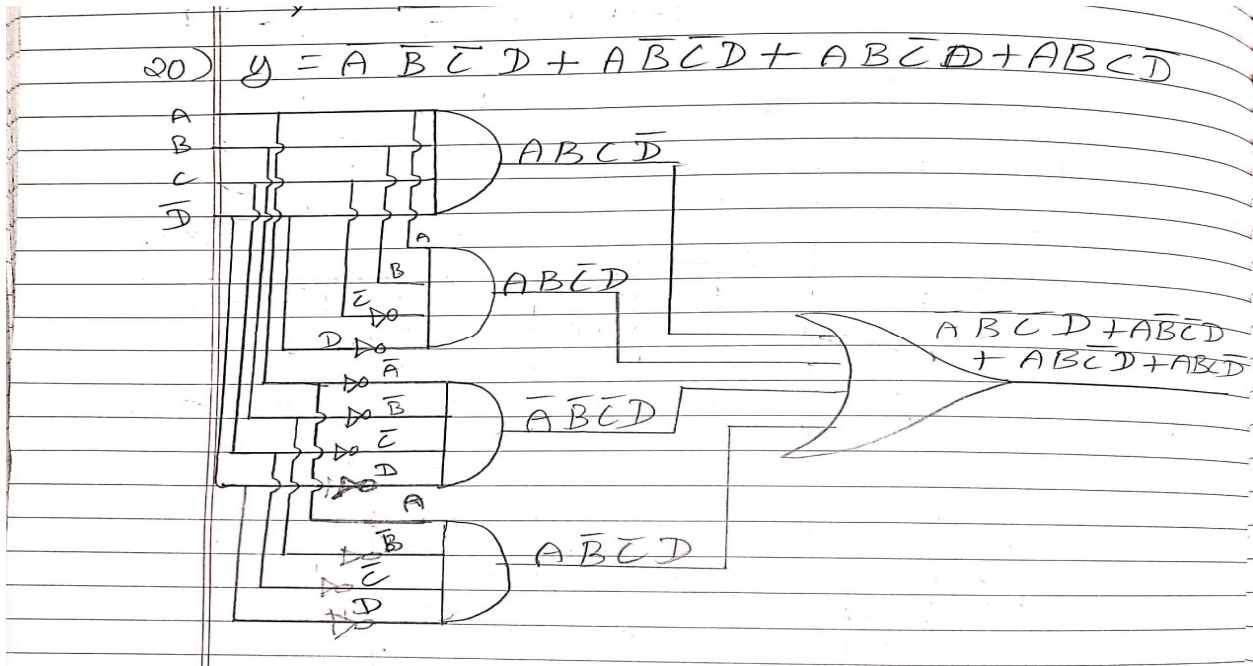 20) y = A̅ B̅ C̅ D + A B̅ C̅ D + A B C̅ D + A B C D̅
A
B
C
D̅
A B C D̅
A
B
C̅
D
A B C̅ D
A̅
B̅
C̅
D
A̅ B̅ C̅ D
A
B̅
C̅
D
A B̅ C̅ D
A̅ B̅ C̅ D + A B̅ C̅ D
+ A B C̅ D + A B C D̅